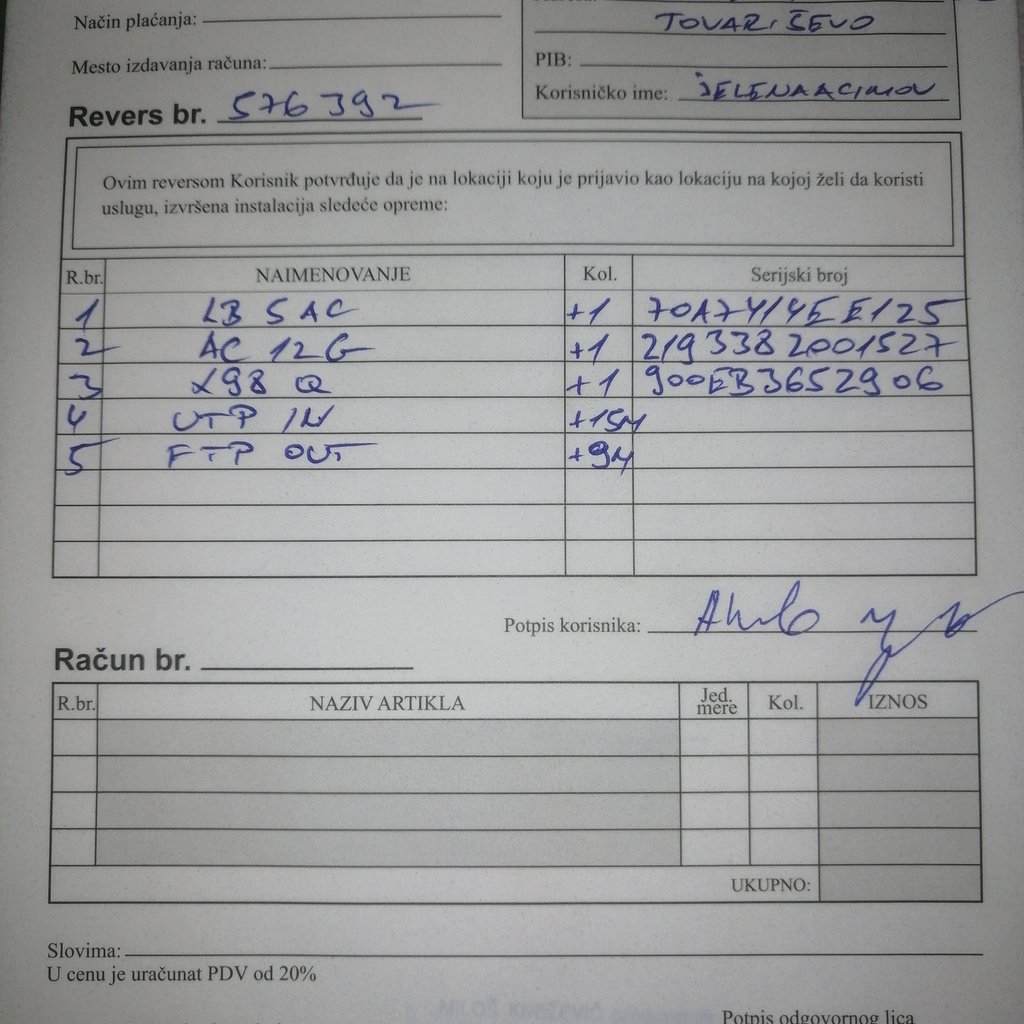 Način plaćanja:
TOVARIŠEVO
Mesto izdavanja računa:
PIB:
Korisničko ime: JELENAACIMOV
Revers br. 576392
Ovim reversom Korisnik potvrđuje da je na lokaciji koju je prijavio kao lokaciju na kojoj želi da koristi
uslugu, izvršena instalacija sledeće opreme:
R.br. NAIMENOVANJE Kol. Serijski broj
1 LB 5 AC +1 70A74145EE125
2 AC 12G +1 2193382001527
3 X98 Q +1 900EB3652906
4 UTP IN +15M
5 FTP OUT +9M
Potpis korisnika:
Račun br.
R.br. NAZIV ARTIKLA Jed. mere Kol. IZNOS
UKUPNO:
Slovima:
U cenu je uračunat PDV od 20%
Potpis odgovornog lica